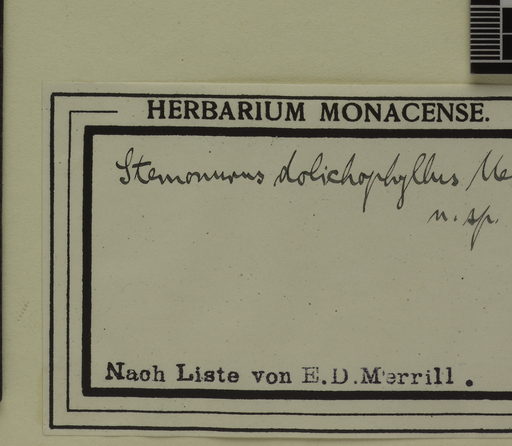 HERBARIUM MONACENSE.
Stemonurus dolichophyllus Me
n. sp.
Nach Liste von E.D.Merrill.